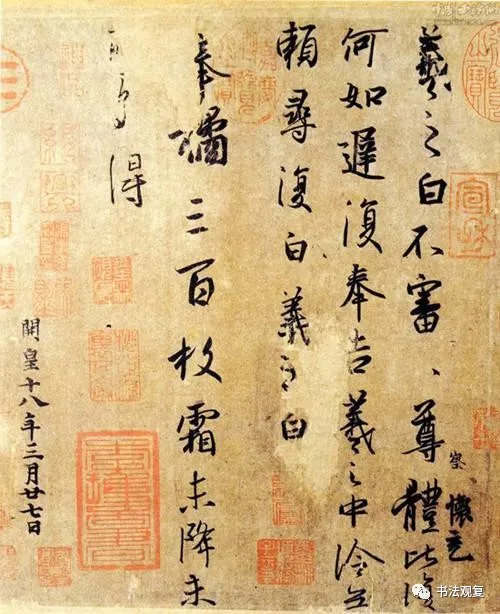 羲之白不審、尊體比復
察 懷充
何如遲復奉告羲之中冷無
賴尋復白羲之白
奉橘三百枚霜未降未
可多得
開皇十八年三月廿七日
书法观复